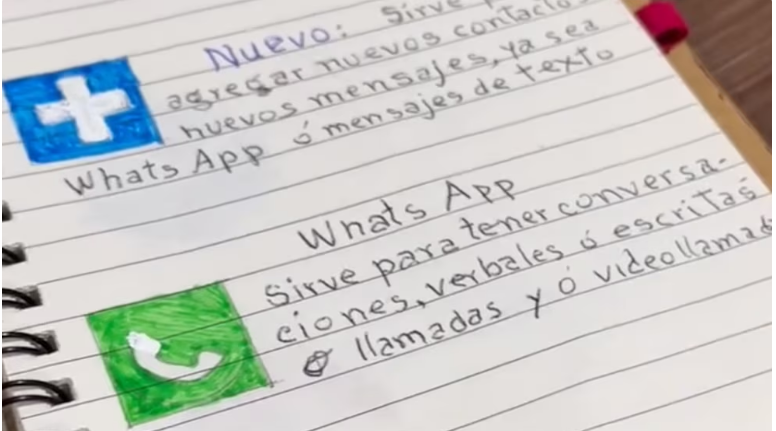 Nuevo: Sirve
agregar nuevos contacto
nuevos mensajes, ya sea
Whats App ó mensajes de texto
Whats App
Sirve para tener conversa-
ciones, verbales ó escritas
llamadas y ó videollamad